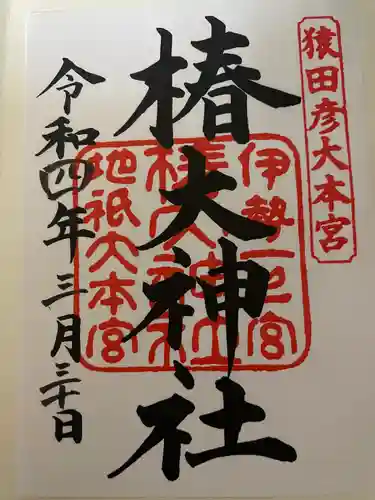 猿田彦大本宮
椿大神社
伊勢一の宮
地祇大本宮
令和四年三月三十日